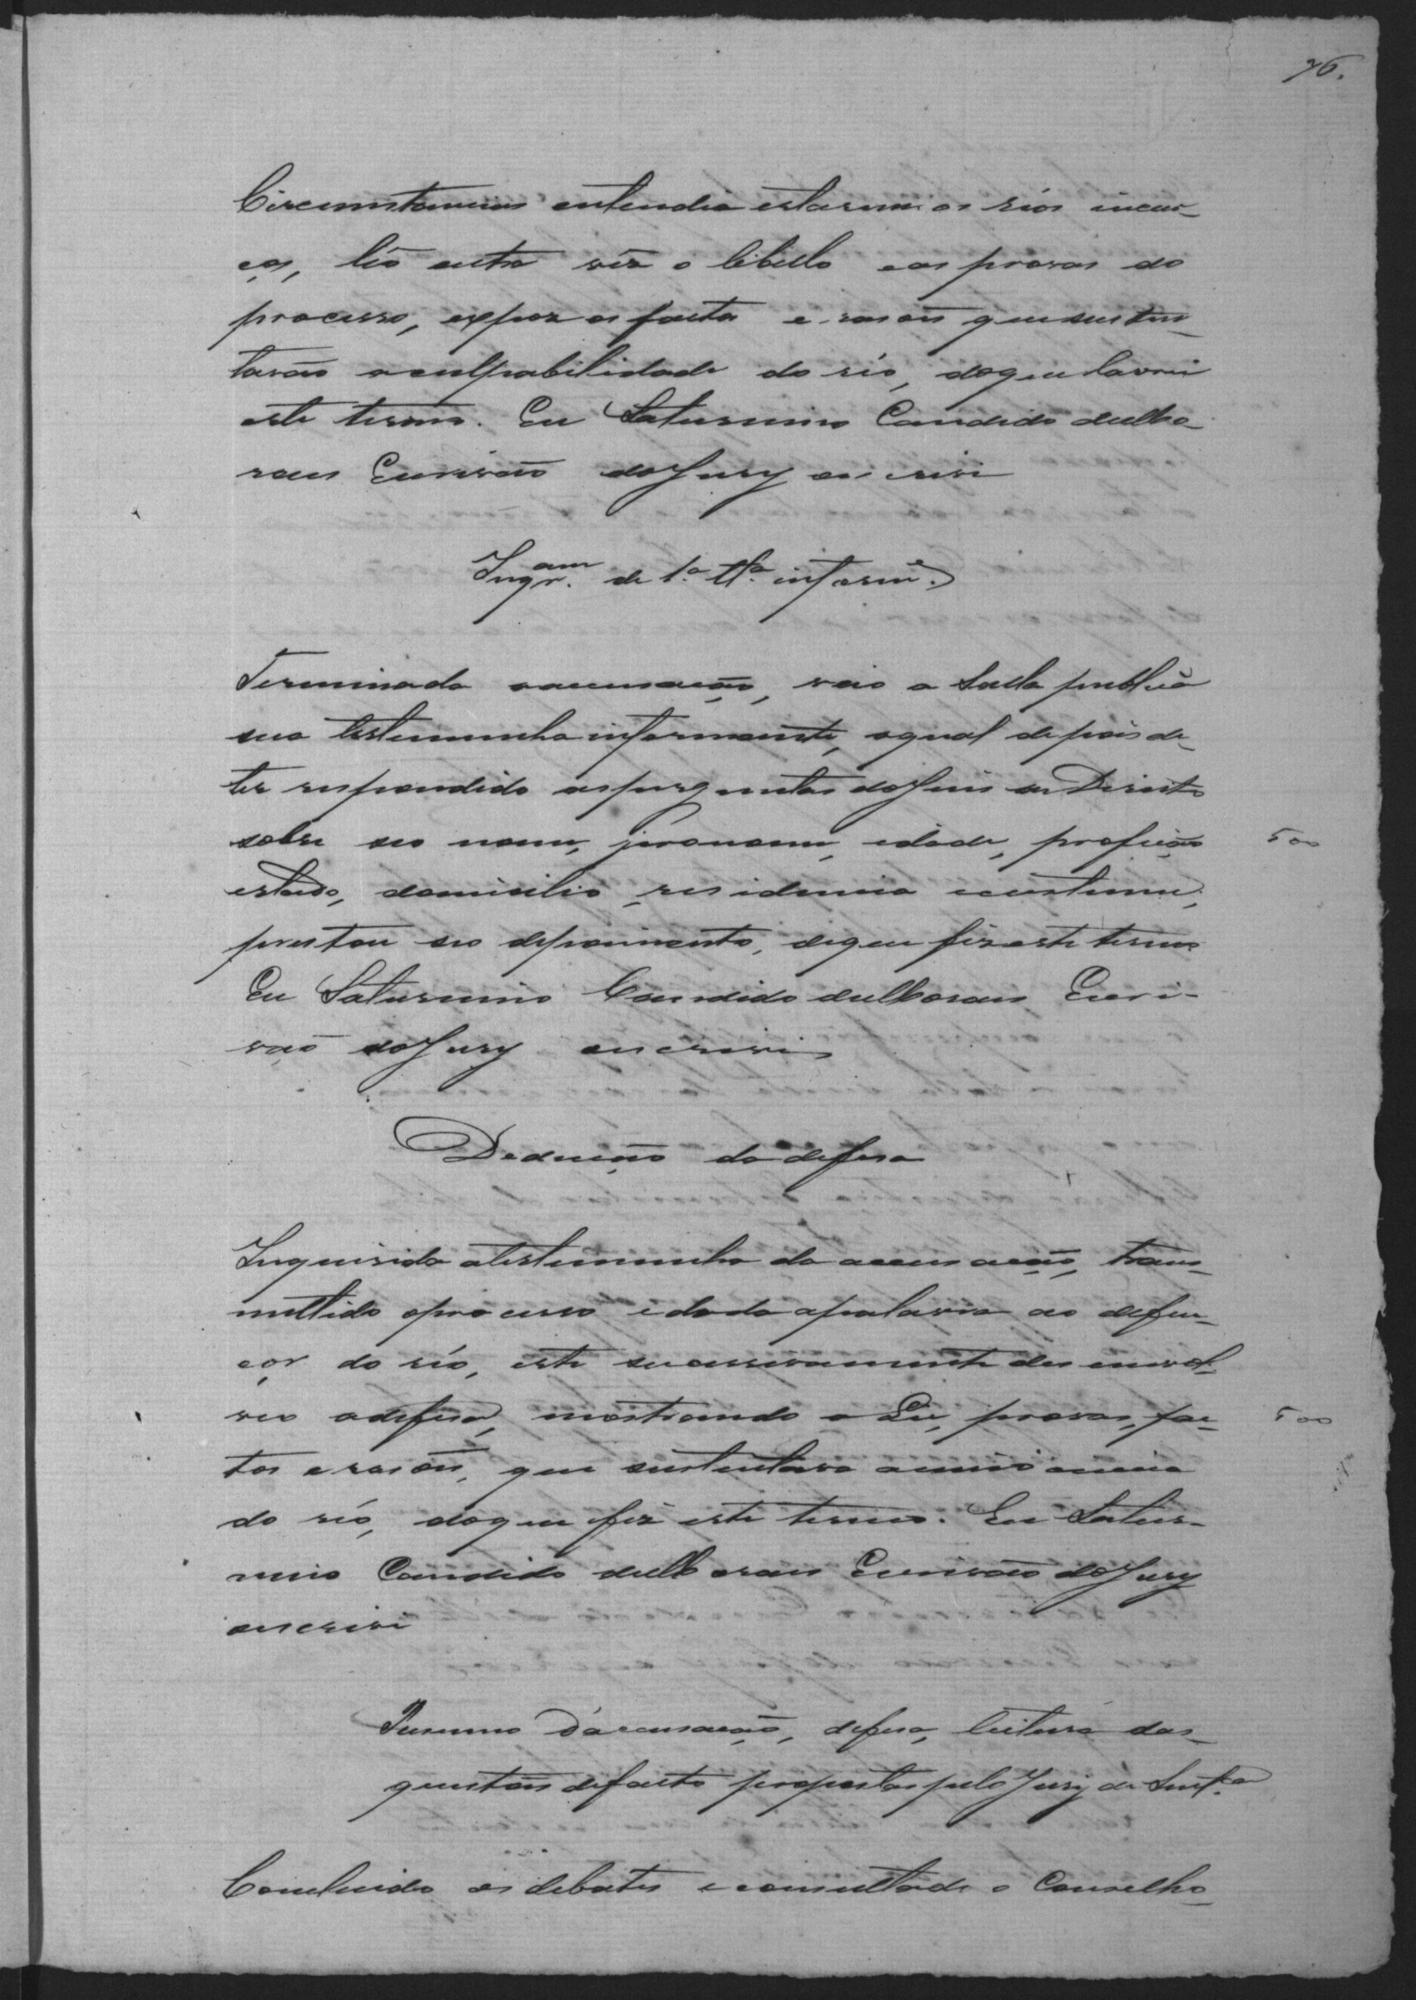 76.
Circumstancias entendia estarem os réos incur-
ços, léo outra vêz o libello e as provas do
processo, expoz os factos e rasões que susten-
tavão a culpabilidade do réo, do que lavrei
este termo. Eu Saturnino Candido de Mo-
raes Escrivão do Jury escrivi
Inqr.am de 1.a tt.a inform.e
Terminada accusação, veio a Salla publica
sua testemunha informante, a qual depois de
ter respondido as perguntas do Juis de Direito
sobre seo nome, pronome, idade, profição
estado, domicilio, residencia e costume,
prestou seo depoimento, do que fiz este termo
Eu Saturnino Candido de Moraes Escri-
vão do Jury escrivi
500
Dedução da defesa
Inquirida a testemunha da accusação, trans-
mittido o processo e dada a palavra ao defen-
çor do réo, este successivamente desenvol-
veo a defesa, mostrando a Lei, provas, fac-
tos e rasões, que sustentava a innocencia
do réo, do que fiz este termo. Eu Satur-
nino Candido de Moraes Escrivão do Jury
escrivi
500
Resumo d'accusação, defesa, leitura das
questões de facto propostas pelo Jury de Sent.ça
Concluido os debates e consultado o Conselho